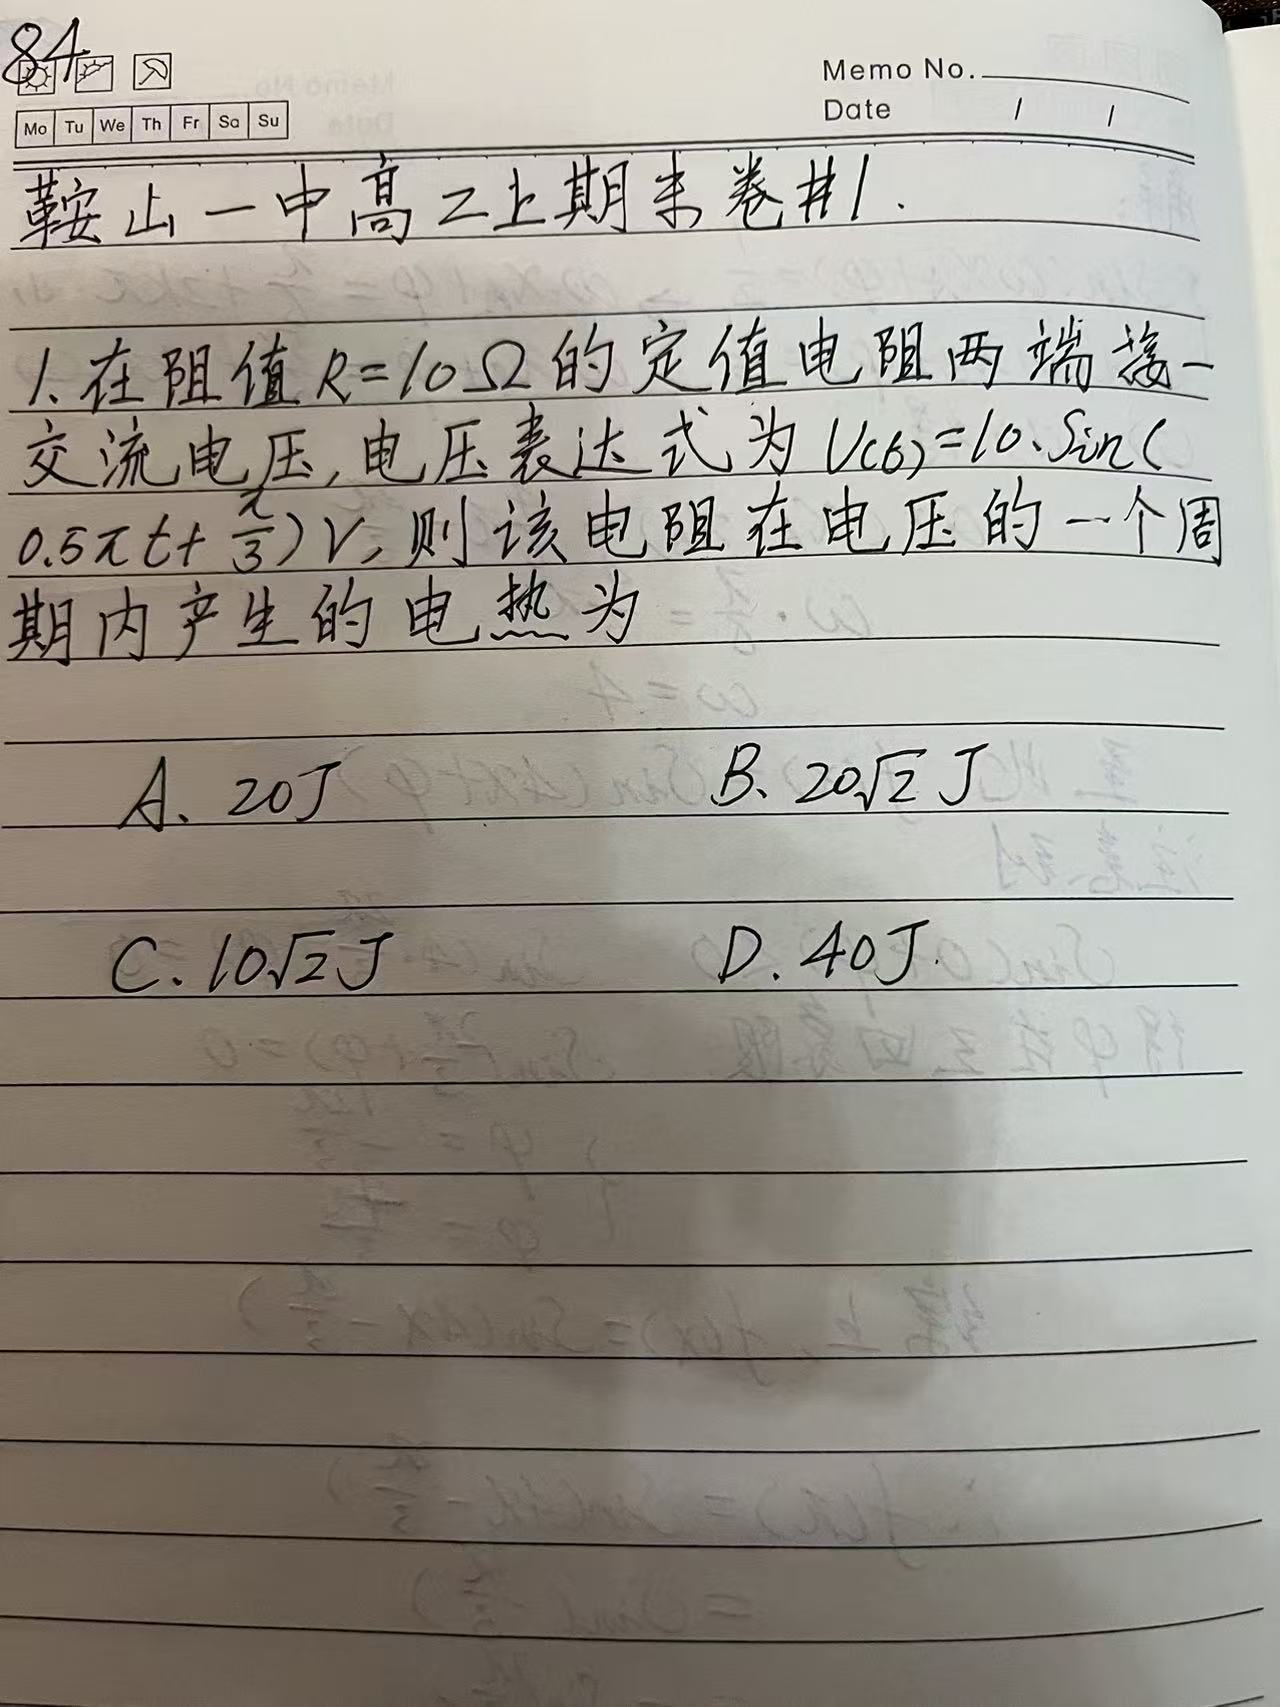 84
Memo No.
Mo Tu We Th Fr Sa Su
Date / /
鞍山一中高二上期末卷#1.
1.在阻值R=10Ω的定值电阻两端接一
交流电压,电压表达式为U(t)=10·Sin(
0.5πt+π/3)V,则该电阻在电压的一个周
期内产生的电热为
A、20J B、20√2 J
C.10√2J D.40J.